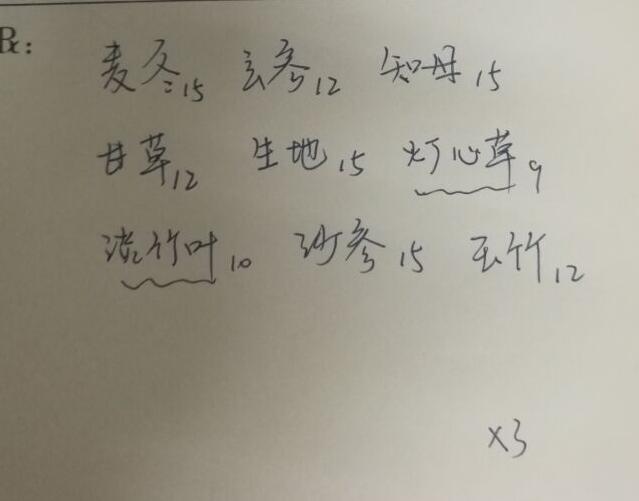 Rx:
麦冬15 玄参12 知母15
甘草12 生地15 灯心草9
淡竹叶10 沙参15 玉竹12
x3